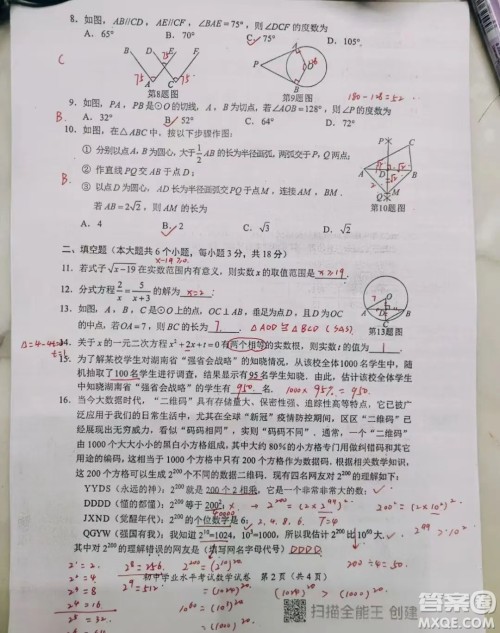 8. 如图,AB//CD,AE//CF,∠BAE=75°,则∠DCF的度数为
A. 65° B. 70° C. 75° D. 105°
C
B E D F
75° 75°
A C
第8题图
P A O B
第9题图
180-128=52
9. 如图,PA,PB是⊙O的切线,A、B为切点,若∠AOB=128°,则∠P的度数为
B. A. 32° B. 52° C. 64° D. 72°
10. 如图,在△ABC中,按以下步骤作图:
①分别以点A、B为圆心,大于1/2AB的长为半径画弧,两弧交于P、Q两点;
②作直线PQ交AB于点D;
B.
③以点D为圆心,AD长为半径画弧交PQ于点M,连接AM、BM.
若AB=2√2,则AM的长为
A. 4 B. 2 C. √3 D. √2
第10题图
二、填空题(本大题共6个小题,每小题3分,共18分)
x-19≥0.
11. 若式子√x-19在实数范围内有意义,则实数x的取值范围是 x≥19.
12. 分式方程2/x=5/(x+3)的解为 x=2.
13. 如图,A、B、C是⊙O上的点,OC⊥AB,垂足为点D,且D为OC
的中点,若OA=7,则BC的长为 7. △AOD≌△BCD (SAS).
第13题图
14. 关于x的一元二次方程x²+2x+t=0有两个相等的实数根,则实数t的值为 1.
15. 为了解某校学生对湖南省“强省会战略”的知晓情况,从该校全体1000名学生中,随
机抽取了100名学生进行调查.结果显示有95名学生知晓.由此,估计该校全体学生
中知晓湖南省“强省会战略”的学生有 950 名. 1000×95%=950.
16. 当今大数据时代,“二维码”具有存储量大、保密性强、追踪性高等特点,它已被广
泛应用于我们的日常生活中,尤其在全球“新冠”疫情防控期间,区区“二维码”已
经展现出无穷威力.看似“码码相同”,实则“码码不同”.通常,一个“二维码”
由1000个大大小小的黑白小方格组成,其中大约的80%的小方格专门用做纠错码和其
它用途的编码,这相当于1000个方格中只有200个方格作为数据码.根据相关数学知识,
这200个方格可以生成2²⁰⁰个不同的数据二维码.现有四名网友对2²⁰⁰的理解如下:
YYDS(永远的神):2²⁰⁰就是200个2相乘,它是一个非常非常大的数;
DDDD(懂的都懂):2²⁰⁰等于200²;
JXND(觉醒年代):2²⁰⁰的个位数字是6; 2,4,8,6. T=4
QGYW(强国有我):我知道2¹⁰=1024,10³=1000,所以我估计2²⁰⁰比10⁶⁰大.
其中对2²⁰⁰的理解错误的网友是(填写网名字母代号) DDDD.
200÷4=50.
初中学业水平考试数学试卷 第2页(共4页)
扫描全能王 创建
答案圈
MXQE.COM